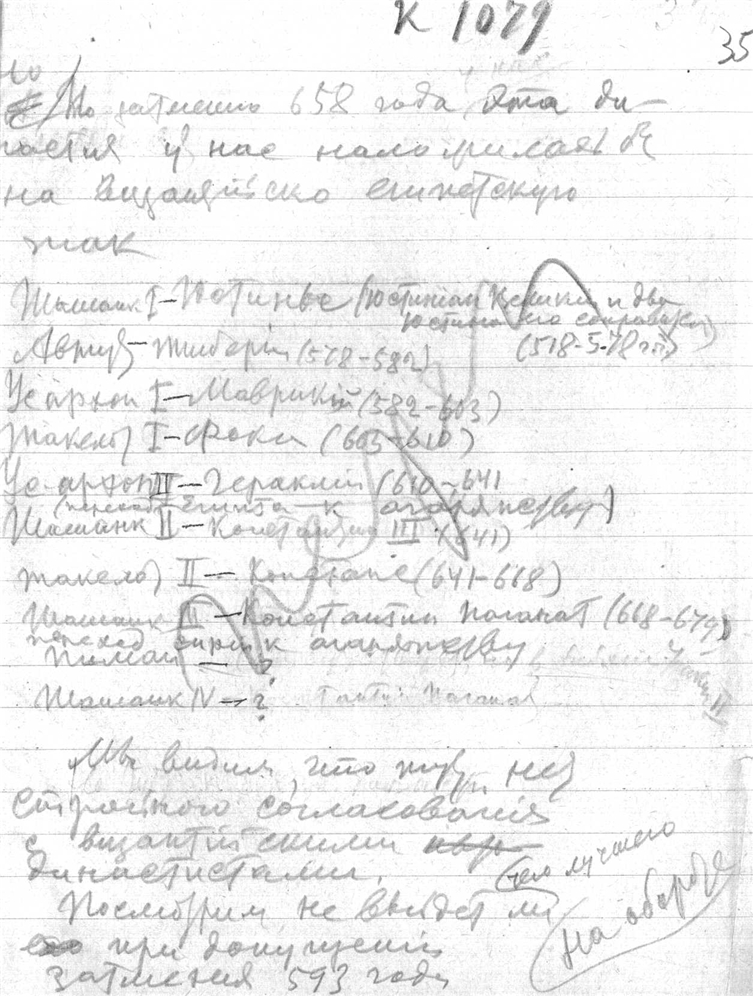 К 1079
35
По затмению 658 года эта ди-
настия у нас наложилась бы
на Византийско египетскую
так
Шашанк I — Юстиньес (Юстиниан Великий и два
Юстина его соправителя)
(518-578 гг)
Автуб — Тиберий (578-582)
Усархон I — Маврикий (582-603)
Такелоб I — Фока (603-610)
Усархон II — Гераклий (610-641
(переход Египта к агарянству)
Шашанк II — Константин III (641)
Такелоб II — Констанс (641-668)
Шашанк III — Константин Паганат (668-679)
переход Сирии к агарянству
Пимаи — ?
Шашанк IV — ?
Мы видим, что тут нет
стройного согласования
с византийскими
династистами.
Посмотрим не выйдет ли
чего лучшего
при допущении
затмения 593 года
На обороте